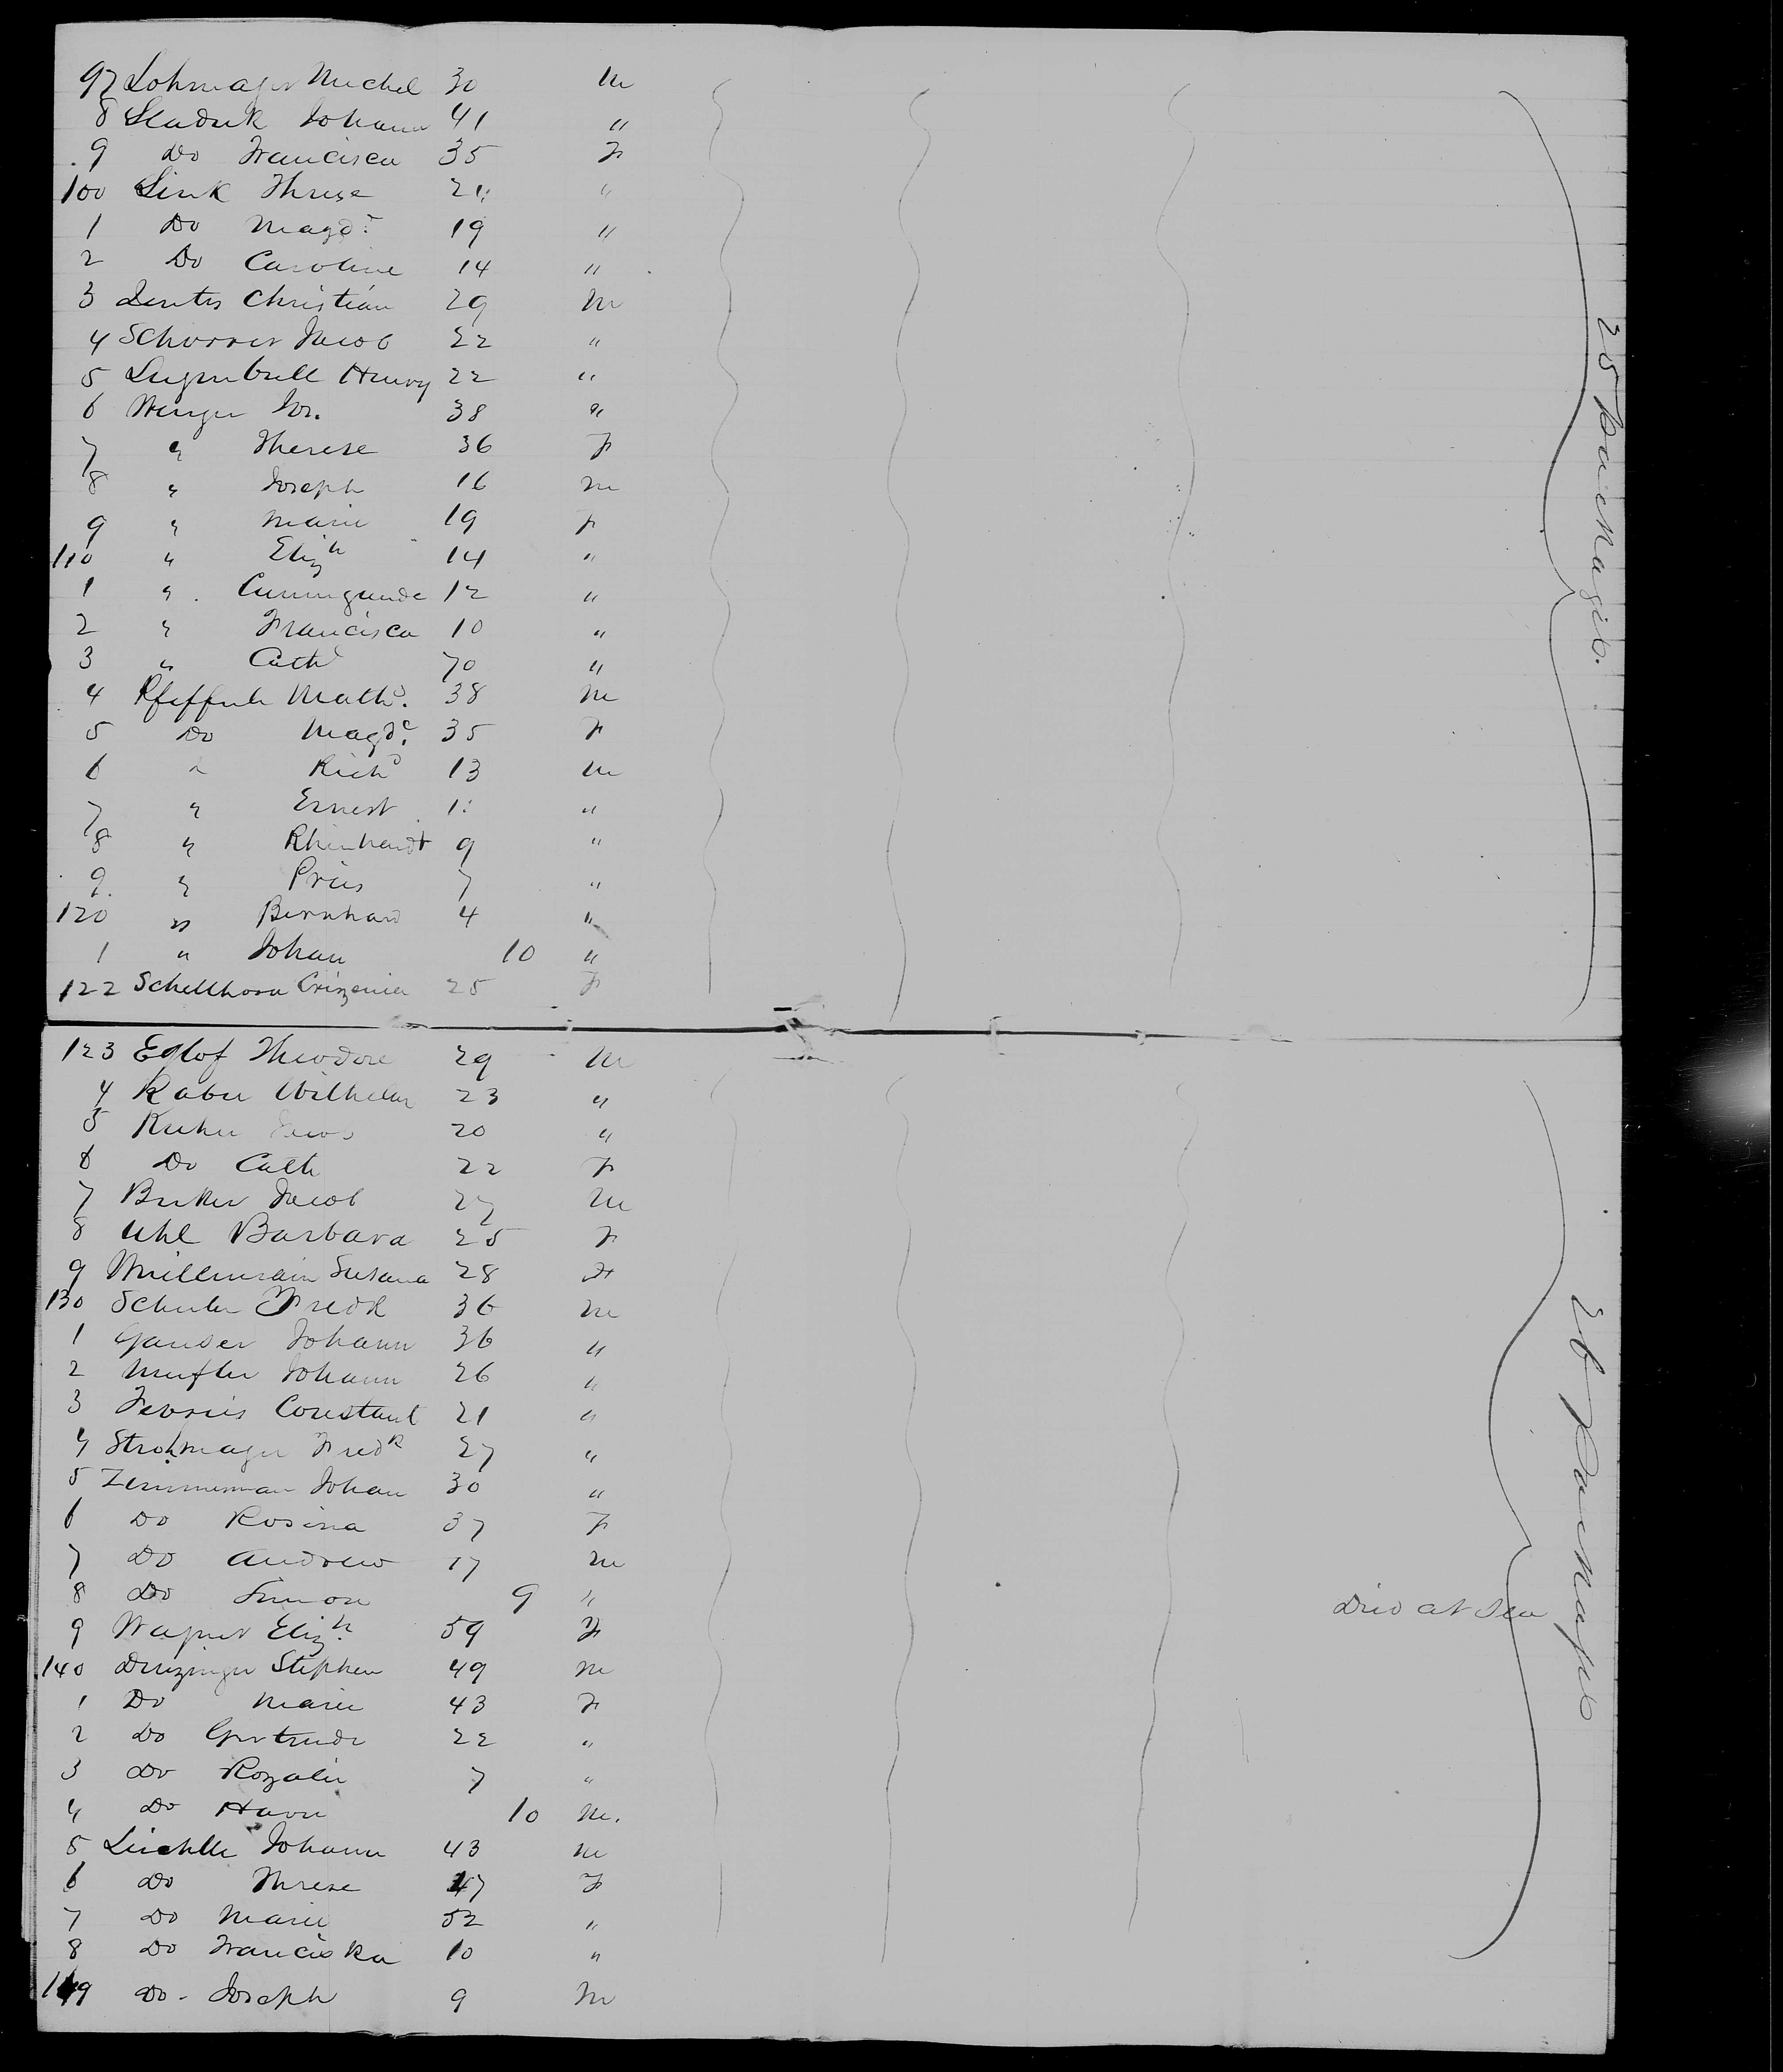 97 Lohmager Michel 30 M
8 Sladuk Johann 41 "
9 Do Francisca 35 F
100 Link Threse 24 "
1 Do Magd. 19 "
2 Do Caroline 14 "
3 Christian 29 M
4 Schorrer Jacob 22 "
5 Lugenbull Henry 22 "
6 Wenger Jos. 38 "
7 " Therese 36 F
8 " Joseph 16 M
9 " Marie 19 F
110 " Eliz^h 14 "
1 " Cunnigunde 12 "
2 " Francisca 10 "
3 " Cath 70 "
4 Math^s. 38 M
5 Do Magd^e. 35 F
6 " Rich^d 13 M
7 " Ernest "
8 " Rhinhardt 9 "
9 " 7 "
120 " Bernhard 4 "
1 " Johan 10 "
122 Schellhorn Crizenia 25 F
25 pauMagib.
123 Eglof Theodore 29 M
4 Raber Wilhelm 23 "
5 Kuhn Jacob 20 "
6 Do Cath 22 F
7 Jacob 27 M
8 Uhl Barbara 25 F
9 Susana 28 F
130 Schuler Fredk 36 M
1 Ganser Johann 36 "
2 Johann 26 "
3 Constant 21 "
4 Strohmager Fred^k 27 "
5 Zimmerman Johan 30 "
6 Do Rosina 37 F
7 Do Andrew 17 M
8 Do Simon 9 " Died at Sea
9 Wagner Eliz^h. 59 F
140 Stephen 49 M
1 Do Marie 43 F
2 Do Gertrude 22 "
3 Do Rozalie 7 "
4 Do 10 M.
5 Johann 43 M
6 Do Threse 47 F
7 Do Marie 52 "
8 Do Franciska 10 "
149 Do - Joseph 9 M